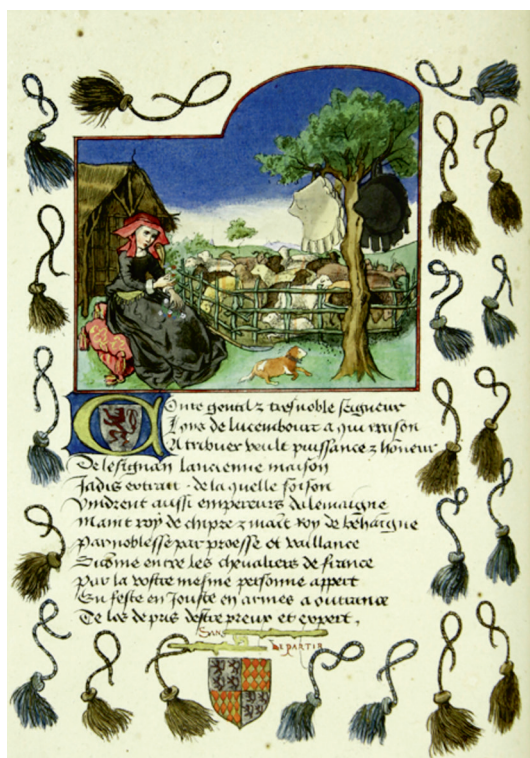 Conte gentil z tresnoble seigneur
Loys de lucembourc a qui raison
Atribuer veult puissance z honeur
De lesignan lancienne maison
Jadis extrait. de la quelle foison
Vindrent aussi empereurs dalemaigne
Maint roy de chipre z mait Roy de behaigne
Par noblesse par proesse et vaillance
Estime entre les chevaliers de france
Par la vostre mesme personne appert
En feste en Jouste en armes a oultrance
Te los de pris destre preux et expert,
Sans
DEPARTIR